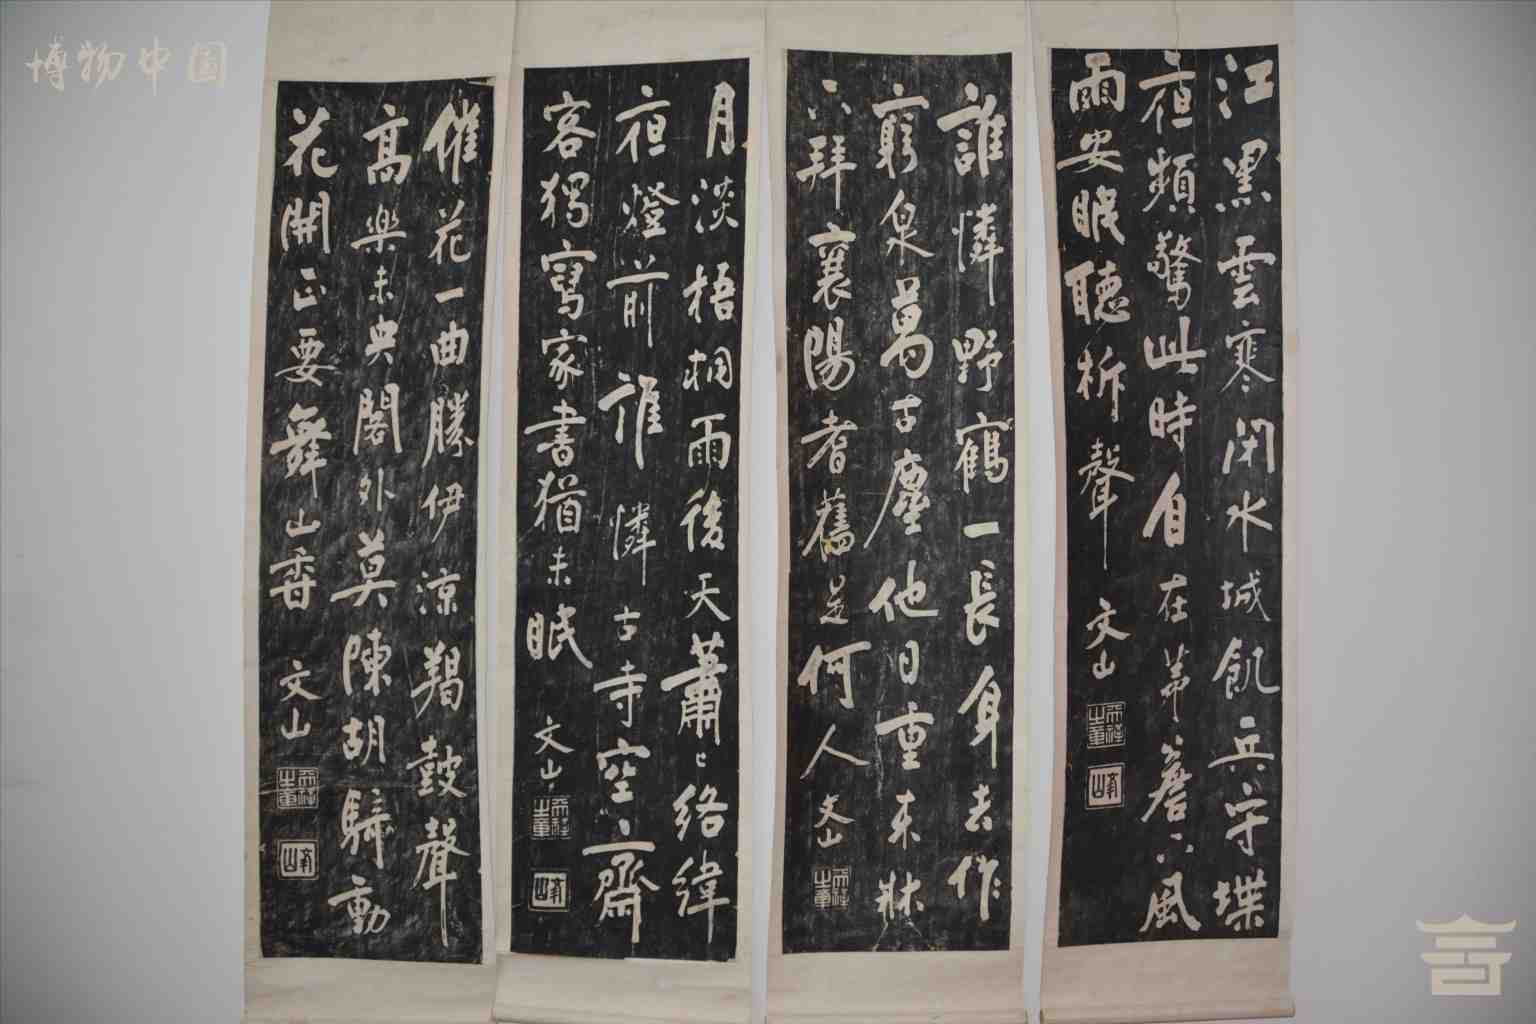 博物中国
江黑雲寒閉水城飢兵守堞
夜頻驚此時自在茅簷下風
雨安眠聽柝聲
文山
誰憐野鶴一長身去作
窮泉萬古塵他日重來牀
下拜襄陽耆舊是何人
文山
月淡梧桐雨後天蕭〻絡緯
夜燈前誰憐古寺空齋
客獨寫家書猶未眠
文山
催花一曲勝伊涼羯鼓聲
高樂未央閣外莫陳胡騎動
花開正要舞山香
文山